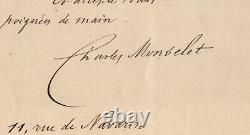 et accepte
poignées de main
Charles Monselet
11, rue de Navarin